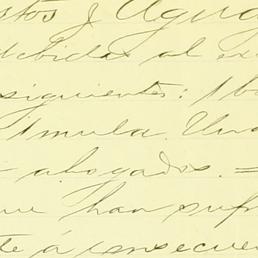 stos y Agua
debidas al ex
siguientes: 1
Tímula. Una
abogados. =
que han sufr
te á consecuen